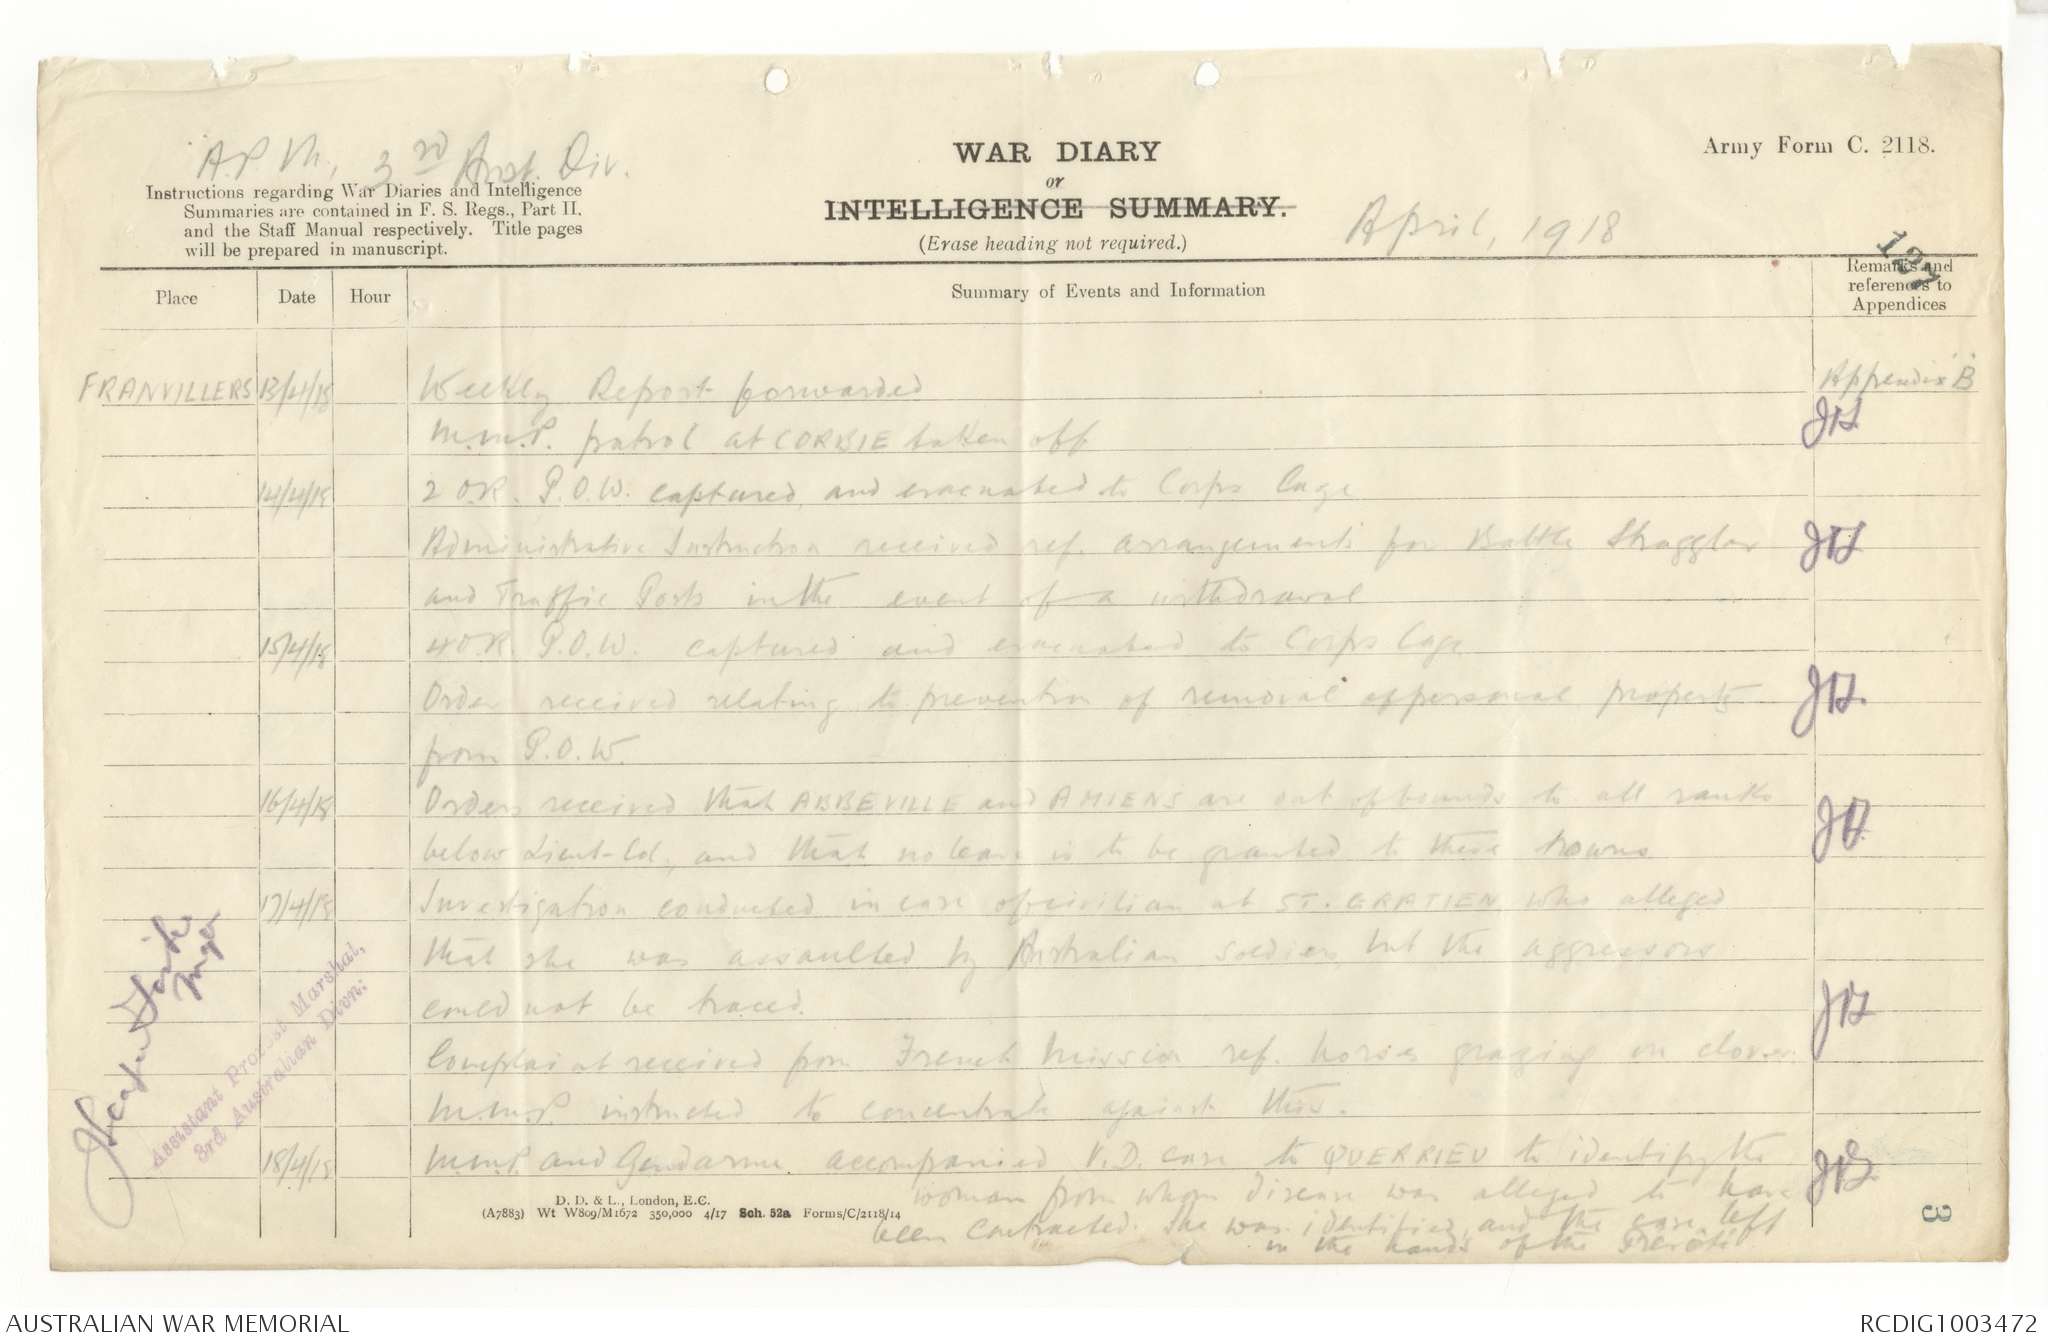 A.P.M., 3rd Aust. Div.
WAR DIARY
or
INTELLIGENCE SUMMARY.
(Erase heading not required.)
Army Form C. 2118.
Instructions regarding War Diaries and Intelligence
Summaries are contained in F. S. Regs., Part II.
and the Staff Manual respectively. Title pages
will be prepared in manuscript.
April, 1918
127
Place Date Hour Summary of Events and Information Remarks and references to Appendices
FRANVILLERS 13/4/18 Weekly Report forwarded Appendix B
M.M.P. patrol at CORBIE taken off JHS
14/4/18 2 O.R. P.O.W. captured, and evacuated to Corps Cage
Administrative Instruction received ref. arrangements for Battle Straggler
and Traffic Posts in the event of a withdrawal
15/4/18 4 O.R. P.O.W. captured and evacuated to Corps Cage
Order received relating to prevention of removal of personal property
from P.O.W.
16/4/18 Orders received that ABBEVILLE and AMIENS are out of bounds to all ranks
below Lieut-Col., and that no leave is to be granted to these towns
17/4/18 Investigation conducted in case of civilian at ST. GRATIEN who alleged
that she was assaulted by Australian soldiers, but the aggressors
could not be traced.
Complaint received from French Mission ref. horses grazing on clover.
M.M.P. instructed to concentrate against this.
18/4/18 M.M.P. and Gendarme accompanied V.D. case to QUERRIEU to identify the
woman from whom disease was alleged to have
been contracted. She was identified, and the case left
in the hands of the
Major
Assistant Provost Marshal,
3rd Australian Divn:
D. D. & L., London, E.C.
(A7883) Wt W809/M1672 350,000 4/17 Sch. 52a Forms/C/2118/14
3
AUSTRALIAN WAR MEMORIAL
RCDIG1003472